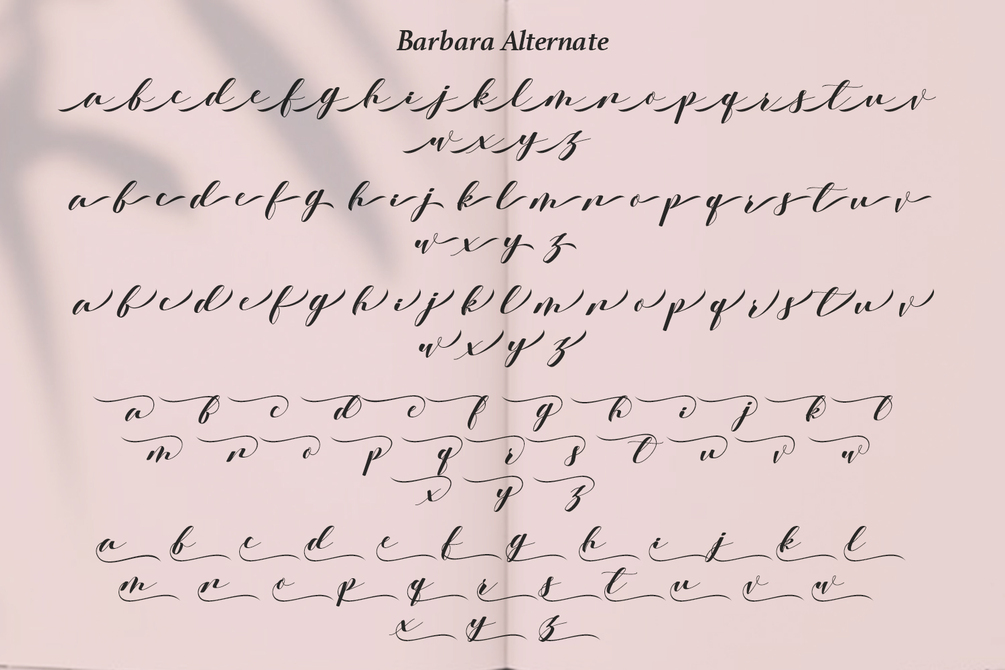 Barbara Alternate
a b c d e f g h i j k l m n o p q r s t u v
w x y z
a b c d e f g h i j k l m n o p q r s t u v
w x y z
a b c d e f g h i j k l m n o p q r s t u v
w x y z
a b c d e f g h i j k l
m n o p q r s t u v w
x y z
a b c d e f g h i j k l
m n o p q r s t u v w
x y z